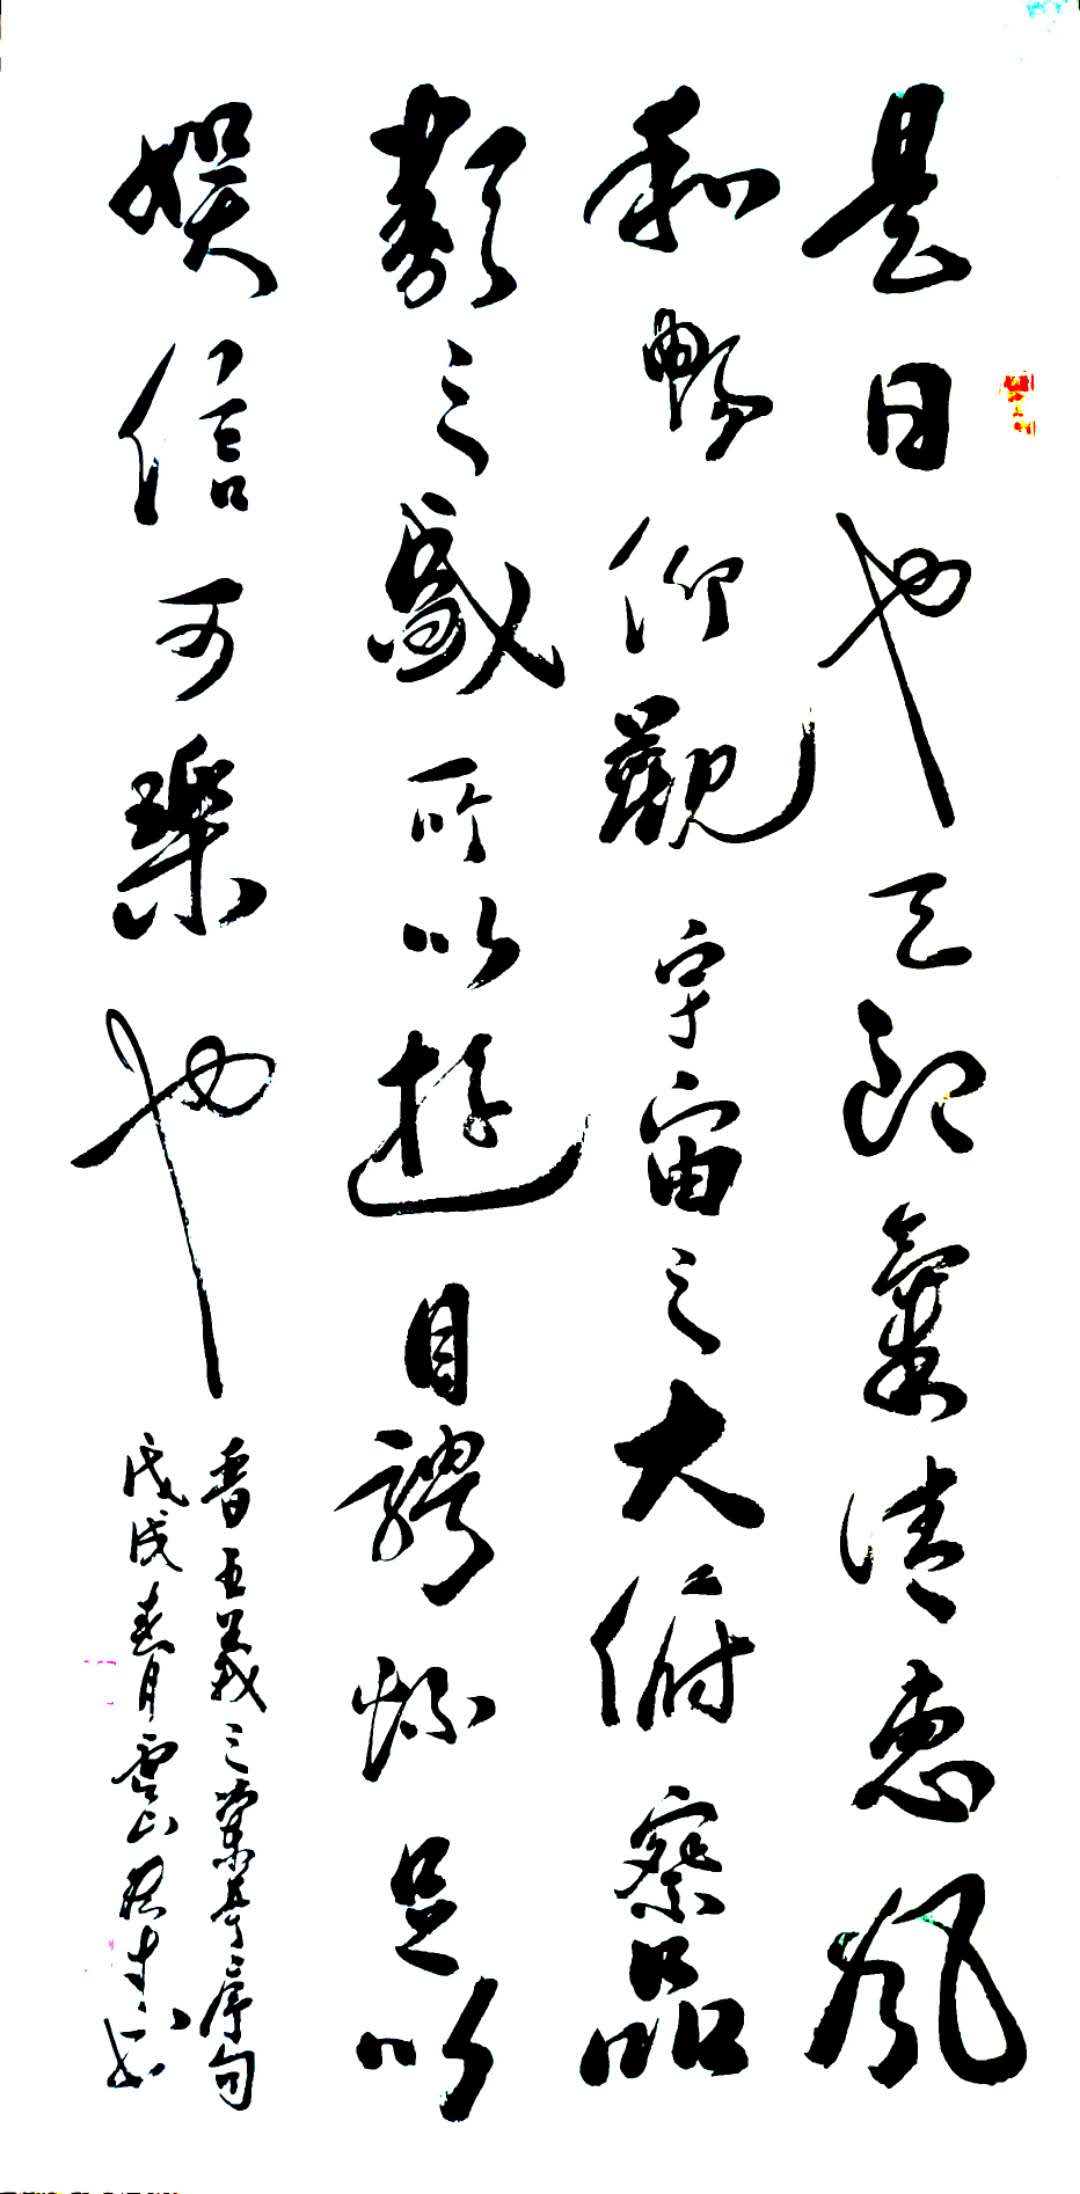 是日也天朗氣清惠風
和暢仰觀宇宙之大俯察品
類之盛所以遊目騁懷足以
娛信可樂也
晉王羲之蘭亭序句
戊戌春月雲山書